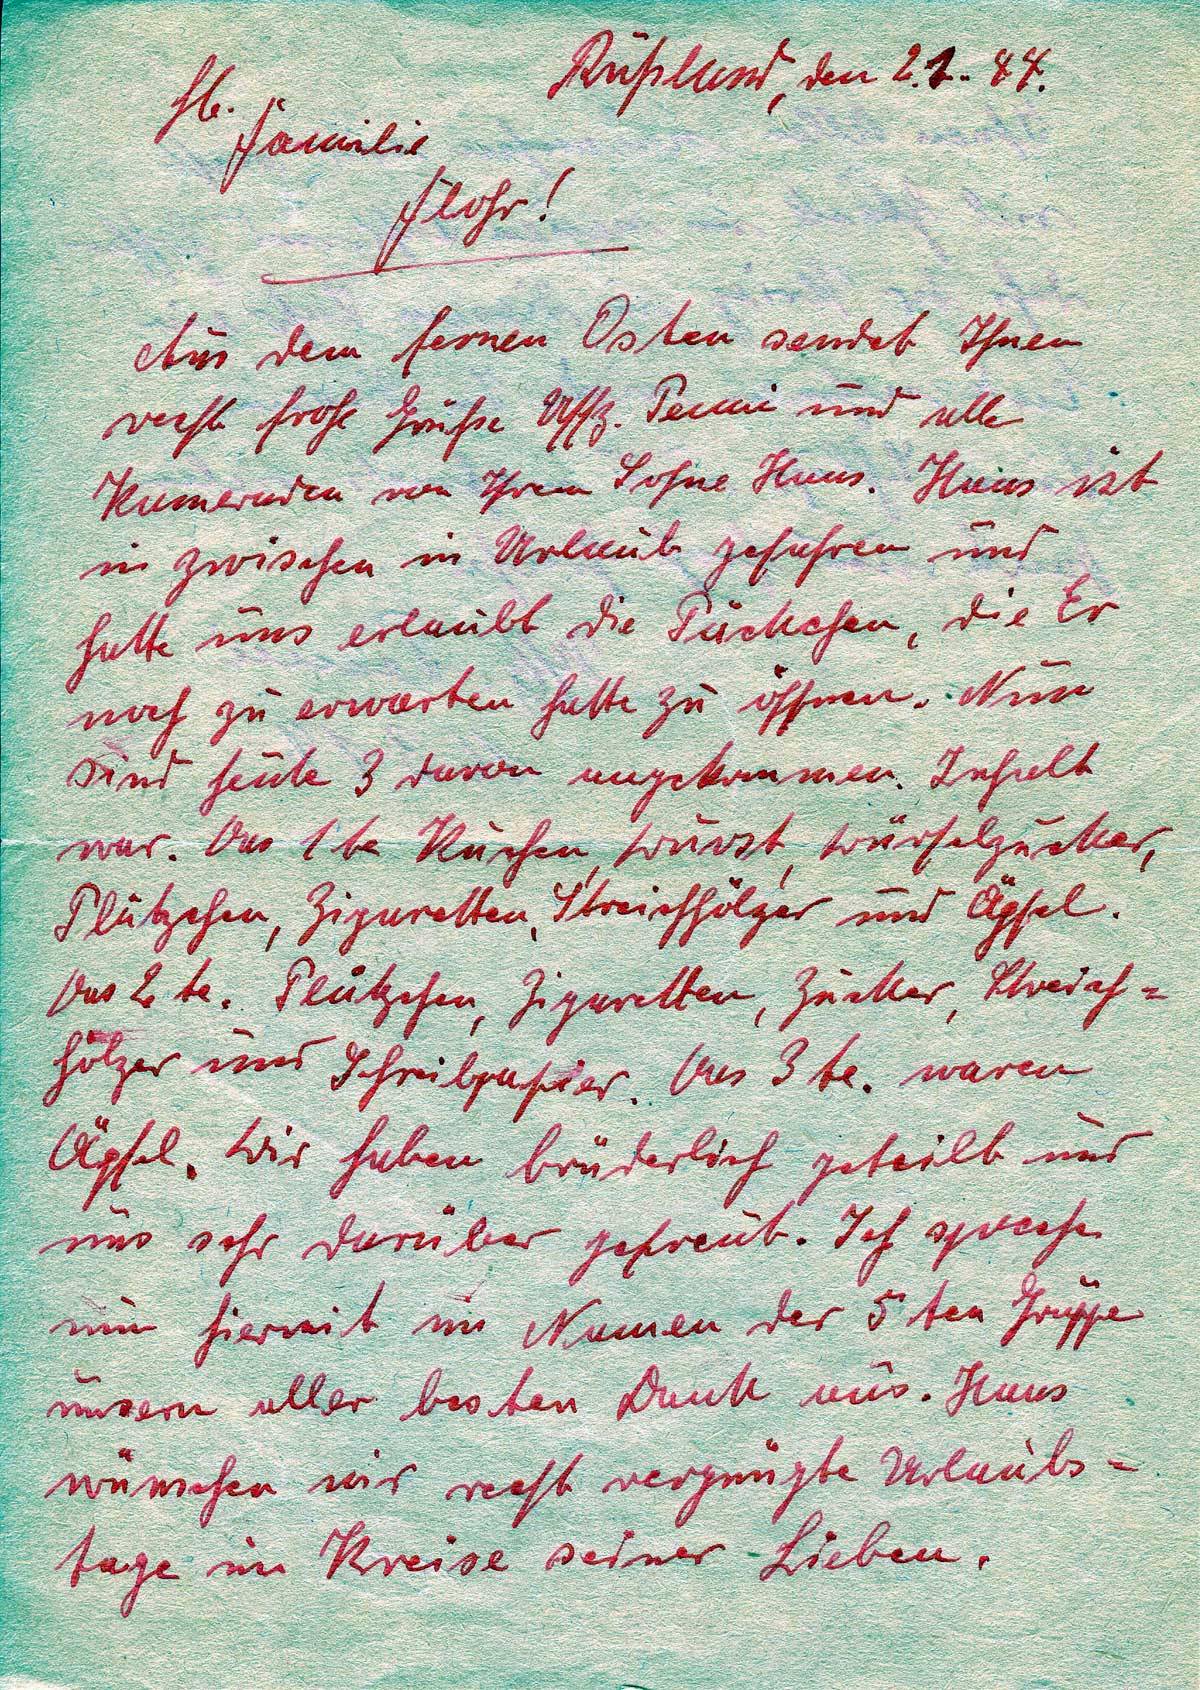 Rußland, den 2.1.44.
Lb.
Familie
Flohr!
Aus dem fernen Osten sendet Ihnen
recht frohe Grüße Uffz. Penni und alle
Kameraden von Ihrem Sohne Hans. Hans ist
in zwischen in Urlaub gefahren und
hatte uns erlaubt die Päckchen, die Er
noch zu erwarten hatte zu öffnen. Nun
sind heute 3 davon angekommen. Inhalt
war. Das 1 te Kuchen, Wurst, Würfelzucker,
Plätzchen, Zigaretten, Streichhölzer und Äpfel.
Das 2 te. Plätzchen, Zigaretten, Zucker, Streich=
hölzer und Schreibpapier. Das 3 te. waren
Äpfel. Wir haben brüderlich geteilt und
uns sehr darüber gefreut. Ich spreche
nun hiermit im Namen der 5 ten Gruppe
unsern aller besten Dank aus. Hans
wünschen wir recht vergnügte Urlaubs=
tage im Kreise seiner Lieben.